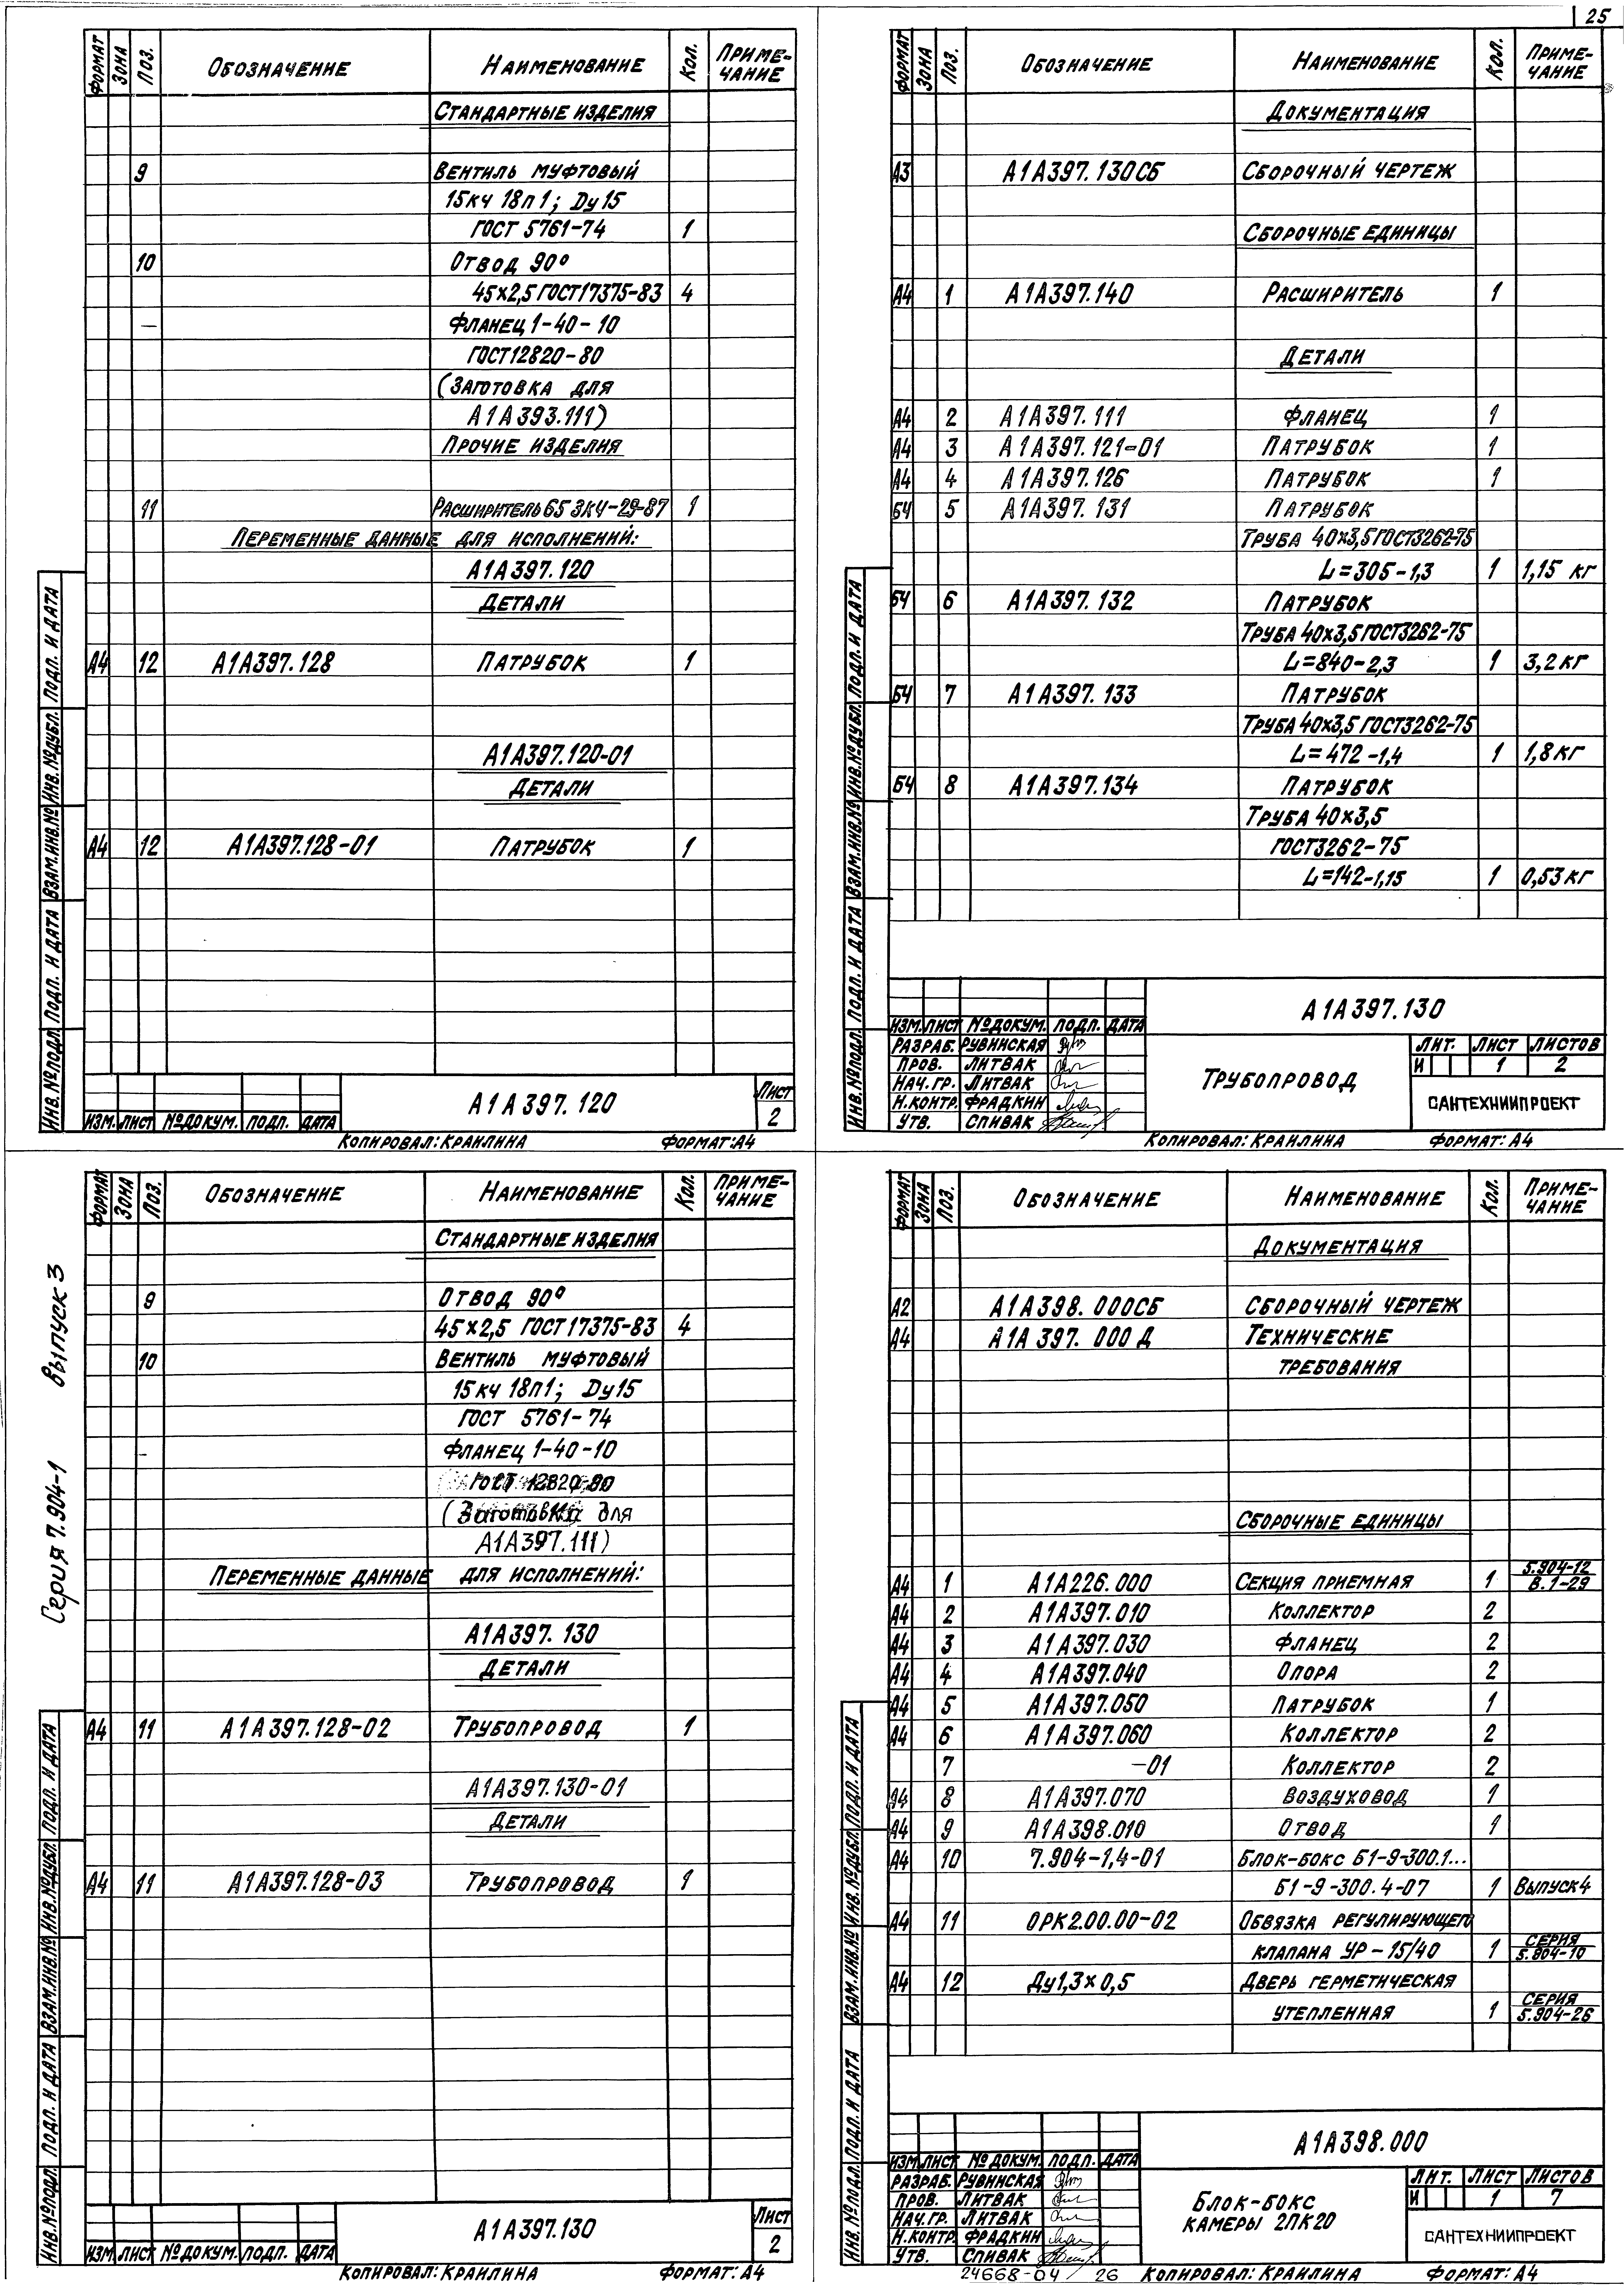 25
ФОРМАТ ЗОНА ПОЗ. ОБОЗНАЧЕНИЕ НАИМЕНОВАНИЕ КОЛ. ПРИМЕ-
ЧАНИЕ
СТАНДАРТНЫЕ ИЗДЕЛИЯ
9 ВЕНТИЛЬ МУФТОВЫЙ
15кч 18п 1; Dу 15
ГОСТ 5761-74 1
10 ОТВОД 90°
45×2,5 ГОСТ17375-83 4
— ФЛАНЕЦ 1-40-10
ГОСТ12820-80
(ЗАГОТОВКА ДЛЯ
А1А393.111)
ПРОЧИЕ ИЗДЕЛИЯ
11 РАСШИРИТЕЛЬ 65 ЗК4-29-87 1
ПЕРЕМЕННЫЕ ДАННЫЕ ДЛЯ ИСПОЛНЕНИЙ:
А1А397.120
ДЕТАЛИ
А4 12 А1А397.128 ПАТРУБОК 1
А1А397.120-01
ДЕТАЛИ
А4 12 А1А397.128-01 ПАТРУБОК 1
ИНВ.№ПОДЛ. ПОДП. И ДАТА ВЗАМ.ИНВ.№ ИНВ.№ДУБЛ. ПОДП. И ДАТА
ИЗМ. ЛИСТ №ДОКУМ. ПОДП. ДАТА
А1А397.120
ЛИСТ
2
КОПИРОВАЛ: КРАИЛИНА ФОРМАТ: А4
ФОРМАТ ЗОНА ПОЗ. ОБОЗНАЧЕНИЕ НАИМЕНОВАНИЕ КОЛ. ПРИМЕ-
ЧАНИЕ
ДОКУМЕНТАЦИЯ
А3 А1А397.130СБ СБОРОЧНЫЙ ЧЕРТЕЖ
СБОРОЧНЫЕ ЕДИНИЦЫ
А4 1 А1А397.140 РАСШИРИТЕЛЬ 1
ДЕТАЛИ
А4 2 А1А397.111 ФЛАНЕЦ 1
А4 3 А1А397.121-01 ПАТРУБОК 1
А4 4 А1А397.126 ПАТРУБОК 1
БЧ 5 А1А397.131 ПАТРУБОК
ТРУБА 40×3,5 ГОСТ3262-75
L=305-1,3 1 1,15 кг
БЧ 6 А1А397.132 ПАТРУБОК
ТРУБА 40×3,5 ГОСТ3262-75
L=840-2,3 1 3,2 кг
БЧ 7 А1А397.133 ПАТРУБОК
ТРУБА 40×3,5 ГОСТ3262-75
L=472-1,4 1 1,8 кг
БЧ 8 А1А397.134 ПАТРУБОК
ТРУБА 40×3,5
ГОСТ3262-75
L=142-1,15 1 0,53 кг
ИНВ.№ПОДЛ. ПОДП. И ДАТА ВЗАМ.ИНВ.№ ИНВ.№ДУБЛ. ПОДП. И ДАТА
А1А397.130
ИЗМ. ЛИСТ №ДОКУМ. ПОДП. ДАТА
РАЗРАБ. РУВИНСКАЯ
ПРОВ. ЛИТВАК
НАЧ.ГР. ЛИТВАК
Н.КОНТР. ФРАДКИН
УТВ. СПИВАК
ТРУБОПРОВОД
ЛИТ. ЛИСТ ЛИСТОВ
И 1 2
САНТЕХНИИПРОЕКТ
КОПИРОВАЛ: КРАИЛИНА ФОРМАТ: А4
Серия 7.904-1 выпуск 3
ФОРМАТ ЗОНА ПОЗ. ОБОЗНАЧЕНИЕ НАИМЕНОВАНИЕ КОЛ. ПРИМЕ-
ЧАНИЕ
СТАНДАРТНЫЕ ИЗДЕЛИЯ
9 ОТВОД 90°
45×2,5 ГОСТ17375-83 4
10 ВЕНТИЛЬ МУФТОВЫЙ
15кч 18п1; Dу15
ГОСТ 5761-74
- ФЛАНЕЦ 1-40-10
ГОСТ 12820-80
(Заготовка для
А1А397.111)
ПЕРЕМЕННЫЕ ДАННЫЕ ДЛЯ ИСПОЛНЕНИЙ:
А1А397.130
ДЕТАЛИ
А4 11 А1А397.128-02 ТРУБОПРОВОД 1
А1А397.130-01
ДЕТАЛИ
А4 11 А1А397.128-03 ТРУБОПРОВОД 1
ИНВ.№ПОДЛ. ПОДП. И ДАТА ВЗАМ.ИНВ.№ ИНВ.№ДУБЛ. ПОДП. И ДАТА
ИЗМ. ЛИСТ №ДОКУМ. ПОДП. ДАТА
А1А397.130
ЛИСТ
2
КОПИРОВАЛ: КРАИЛИНА ФОРМАТ: А4
ФОРМАТ ЗОНА ПОЗ. ОБОЗНАЧЕНИЕ НАИМЕНОВАНИЕ КОЛ. ПРИМЕ-
ЧАНИЕ
ДОКУМЕНТАЦИЯ
А2 А1А398.000СБ СБОРОЧНЫЙ ЧЕРТЕЖ
А4 А1А 397.000 Д ТЕХНИЧЕСКИЕ
ТРЕБОВАНИЯ
СБОРОЧНЫЕ ЕДИНИЦЫ
А4 1 А1А226.000 СЕКЦИЯ ПРИЕМНАЯ 1 5.904-12
В.1-29
А4 2 А1А397.010 КОЛЛЕКТОР 2
А4 3 А1А397.030 ФЛАНЕЦ 2
А4 4 А1А397.040 ОПОРА 2
А4 5 А1А397.050 ПАТРУБОК 1
А4 6 А1А397.060 КОЛЛЕКТОР 2
7 -01 КОЛЛЕКТОР 2
А4 8 А1А397.070 ВОЗДУХОВОД 1
А4 9 А1А398.010 ОТВОД 1
А4 10 7.904-1,4-01 БЛОК-БОКС Б1-9-300.1...
Б1-9-300.4-07 1 ВЫПУСК4
А4 11 ОРК2.00.00-02 ОБВЯЗКА РЕГУЛИРУЮЩЕГО
КЛАПАНА УР-15/40 1 СЕРИЯ
5.804-10
А4 12 Ду1,3×0,5 ДВЕРЬ ГЕРМЕТИЧЕСКАЯ
УТЕПЛЕННАЯ 1 СЕРИЯ
5.904-26
ИНВ.№ПОДЛ. ПОДП. И ДАТА ВЗАМ.ИНВ.№ ИНВ.№ДУБЛ. ПОДП. И ДАТА
А1А398.000
ИЗМ. ЛИСТ №ДОКУМ. ПОДП. ДАТА
РАЗРАБ. РУВИНСКАЯ
ПРОВ. ЛИТВАК
НАЧ.ГР. ЛИТВАК
Н.КОНТР. ФРАДКИН
УТВ. СПИВАК
БЛОК-БОКС
КАМЕРЫ 2ПК20
ЛИТ. ЛИСТ ЛИСТОВ
И 1 7
САНТЕХНИИПРОЕКТ
24668-04 / 26 КОПИРОВАЛ: КРАИЛИНА ФОРМАТ: А4